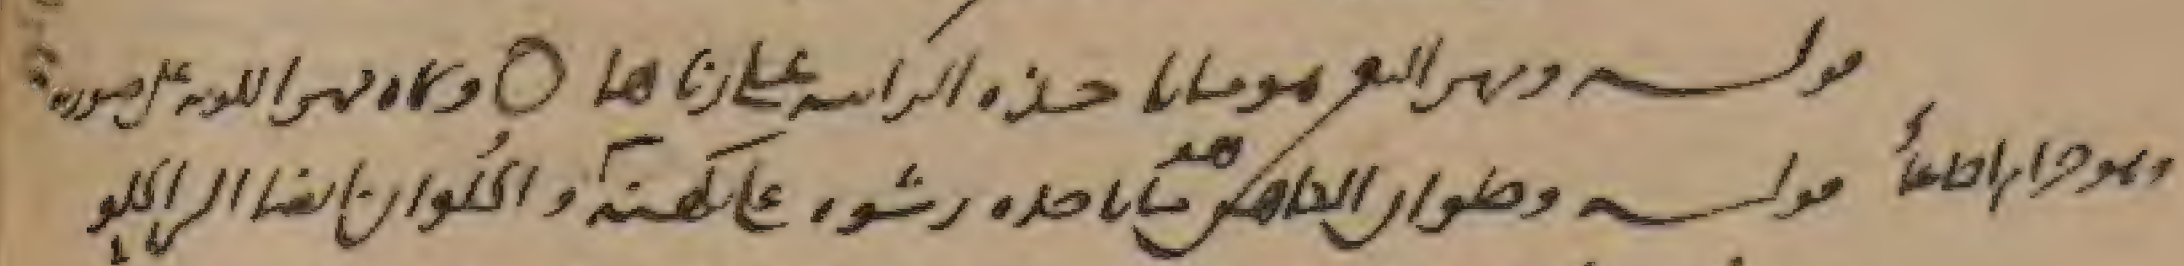 قوله ومهر البغي هو ما تاخذه الزانيه على زناها ○ وسماه مهرا لكونه على صورته
وهو حرام اجماعاً
قوله وحلوان الكاهن هو ما ياخذه رشوه على تكهنه والحلوان ايضا الشي الحلو